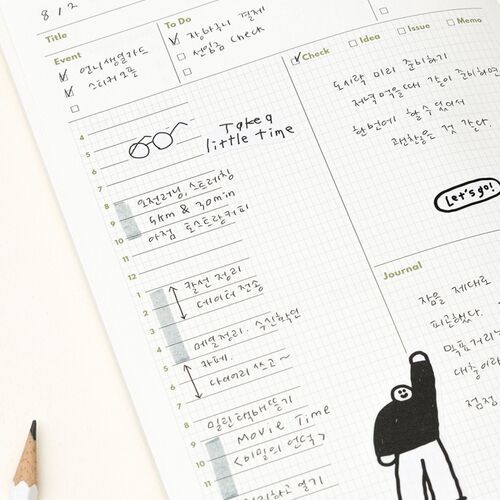 8 / 2
Title
Event
언니생일카드
스티커오픈
To Do
장바구니 결제
선입금 check
Check
Idea
Issue
Memo
도시락 미리 준비하기
저녁먹을때 같이 준비하면
한번에 할수있어서
괜찮을 것 같다.
Let's go!
4
Take a
5
little time
6
7
8
오전러닝, 스트레칭
9
5km & 30min
10
아점 토스트랑커피
11
12
1
칼선 정리
2
데이터 전송
3
4
메일정리. 수신확인
5
카페.
6
다이어리 쓰고~
7
8
밀린택배뜯기
9
Movie Time
10
<비밀의 언덕>
11
하고 열기
Journal
잠을 제대로
피곤했다.
점점